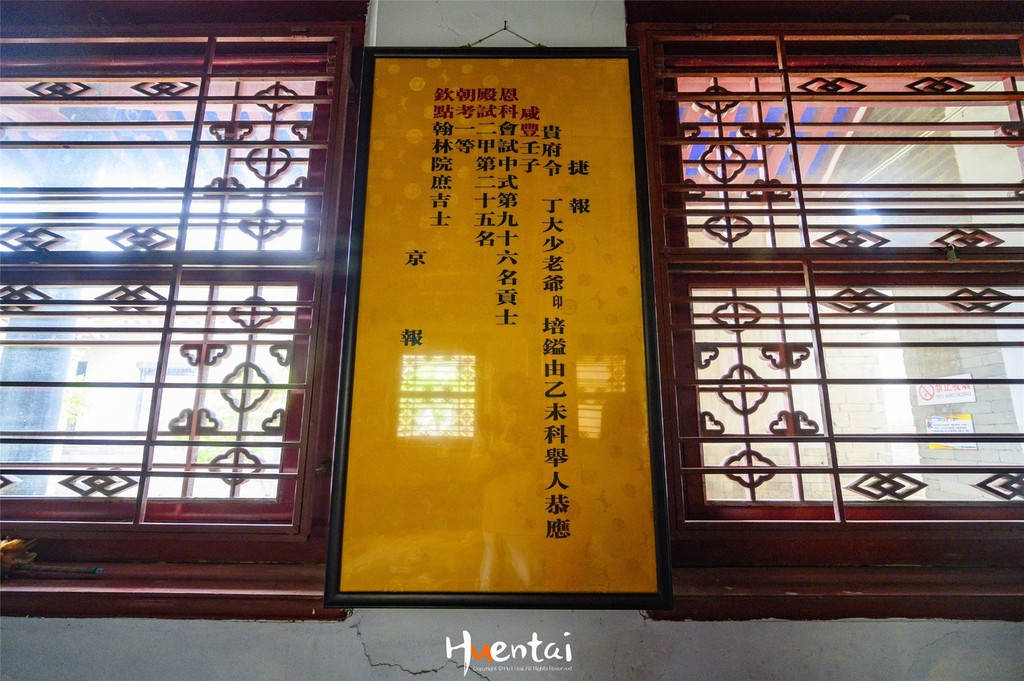 捷報
貴府令 丁大少老爺印培鎰由乙未科舉人恭應
咸豐壬子
恩科會試中式第九十六名貢士
殿試二甲第二十五名
朝考一等
欽點翰林院庶吉士
京報
Huentai